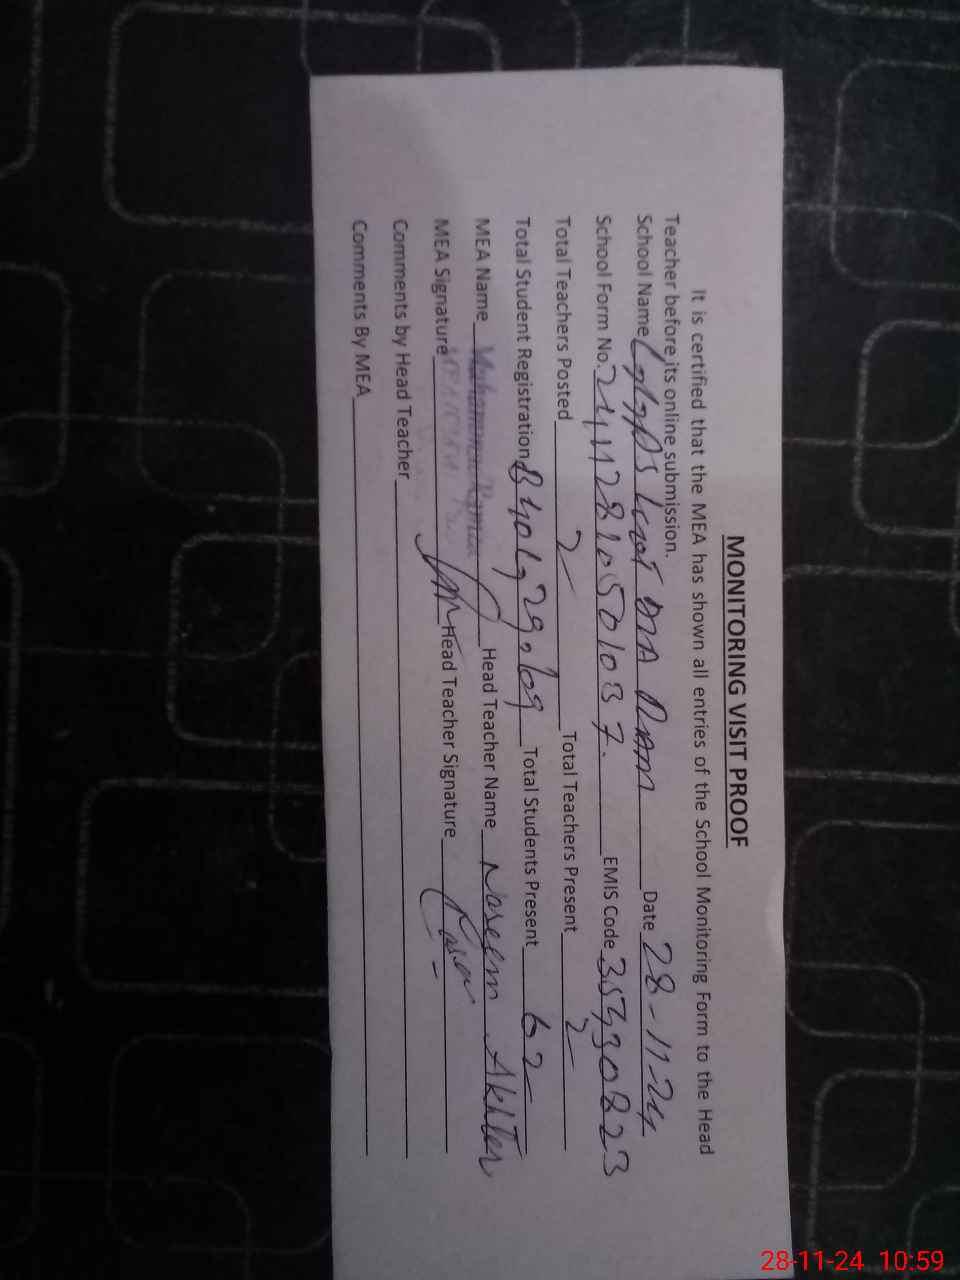 MONITORING VISIT PROOF
It is certified that the MEA has shown all entries of the School Monitoring Form to the Head
Teacher before its online submission.
School Name RAM Date 28-11-24
School Form No. EMIS Code 35430823
Total Teachers Posted 2 Total Teachers Present 2
Total Student Registration Total Students Present 62
MEA Name Head Teacher Name Naseem Akhter
MEA Signature Head Teacher Signature
Comments by Head Teacher
Comments By MEA
28-11-24 10:59